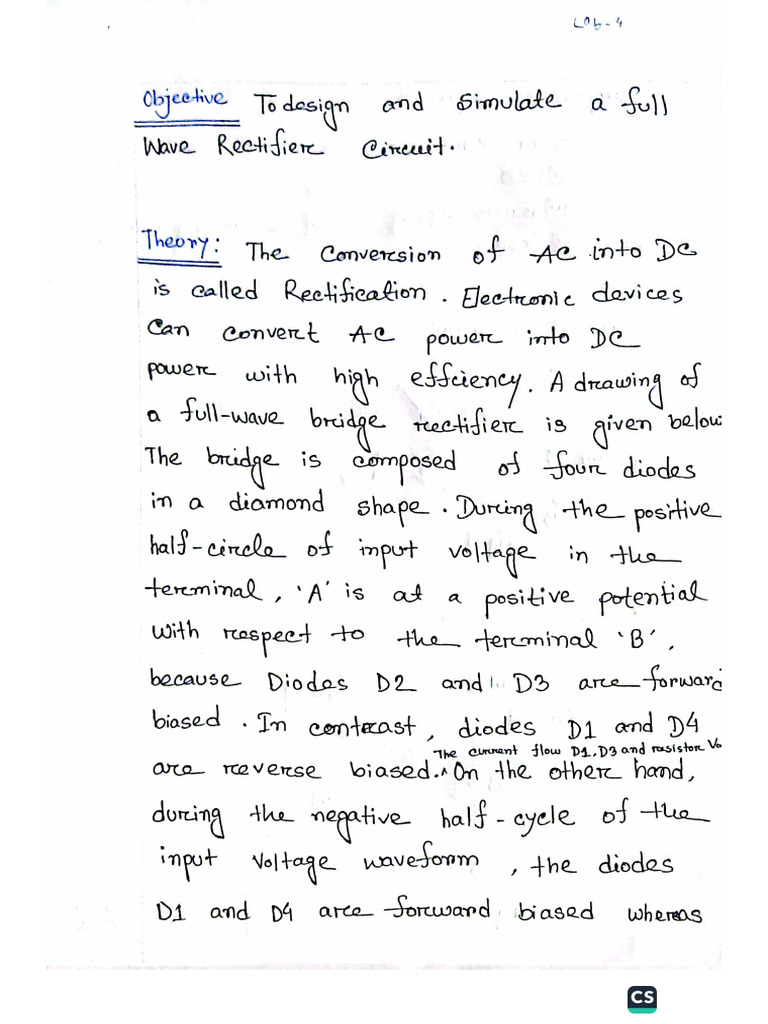 Lab-4
Objective To design and simulate a full
Wave Rectifier Circuit.
Theory: The Conversion of AC into DC
is called Rectification. Electronic devices
Can convert AC power into DC
power with high effciency. A drawing of
a full-wave bridge rectifier is given below
The bridge is composed of four diodes
in a diamond shape. During the positive
half-circle of input voltage in the
terminal, 'A' is at a positive potential
With respect to the terminal 'B',
because Diodes D2 and D3 are forward
biased. In contrast, diodes D1 and D4
The current flow D1, D3 and resistor Vo
are reverse biased.^ On the other hand,
during the negative half-cycle of the
input Voltage waveform, the diodes
D1 and D4 are forward biased whereas
CS